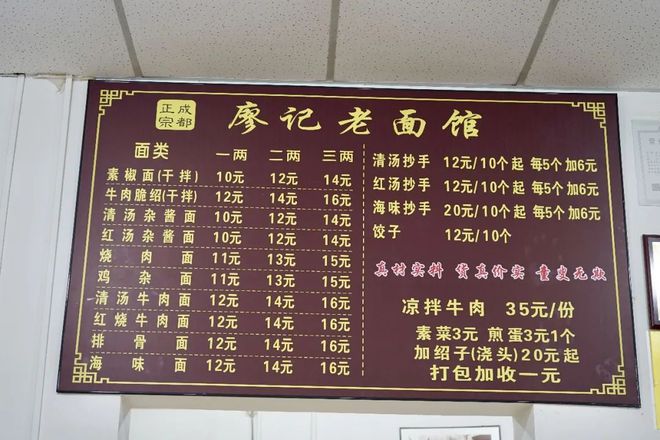 成都
正宗
廖记老面馆
面类 一两 二两 三两
素椒面(干拌) 10元 12元 14元
牛肉脆绍(干拌) 12元 14元 16元
清汤杂酱面 10元 12元 14元
红汤杂酱面 10元 12元 14元
烧肉面 11元 13元 15元
鸡杂面 11元 13元 15元
清汤牛肉面 12元 14元 16元
红烧牛肉面 12元 14元 16元
排骨面 12元 14元 16元
海味面 12元 14元 16元
清汤抄手 12元/10个起 每5个加6元
红汤抄手 12元/10个起 每5个加6元
海味抄手 20元/10个起 每5个加6元
饺子 12元/10个
真材实料 货真价实 童叟无欺
凉拌牛肉 35元/份
素菜3元 煎蛋3元1个
加绍子(浇头)20元起
打包加收一元